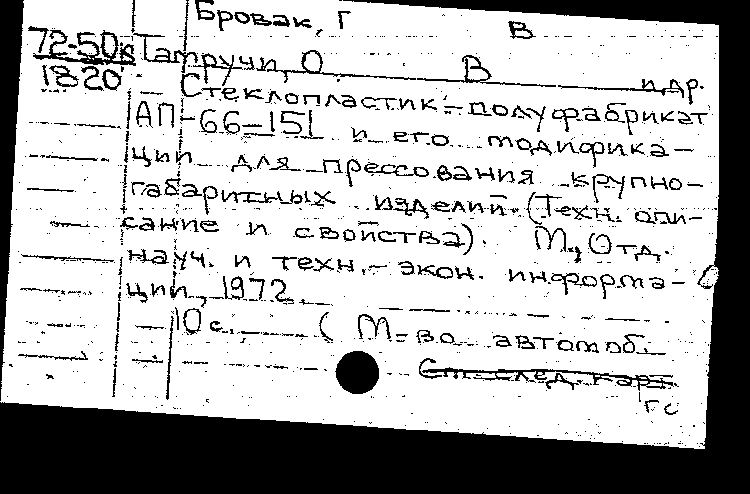 Бровак, Г В
72-50к Татручи, О. В и др.
1820
Стеклопластик - полуфабрикат
АП-66-151 и его модифика-
ции для прессования крупно-
габаритных изделий. (Техн. опи-
сание и свойства). М., Отд.
науч. и техн.-экон. информа-
ции, 1972.
10 с. (М-во автомоб.
См. след. карт.
гс